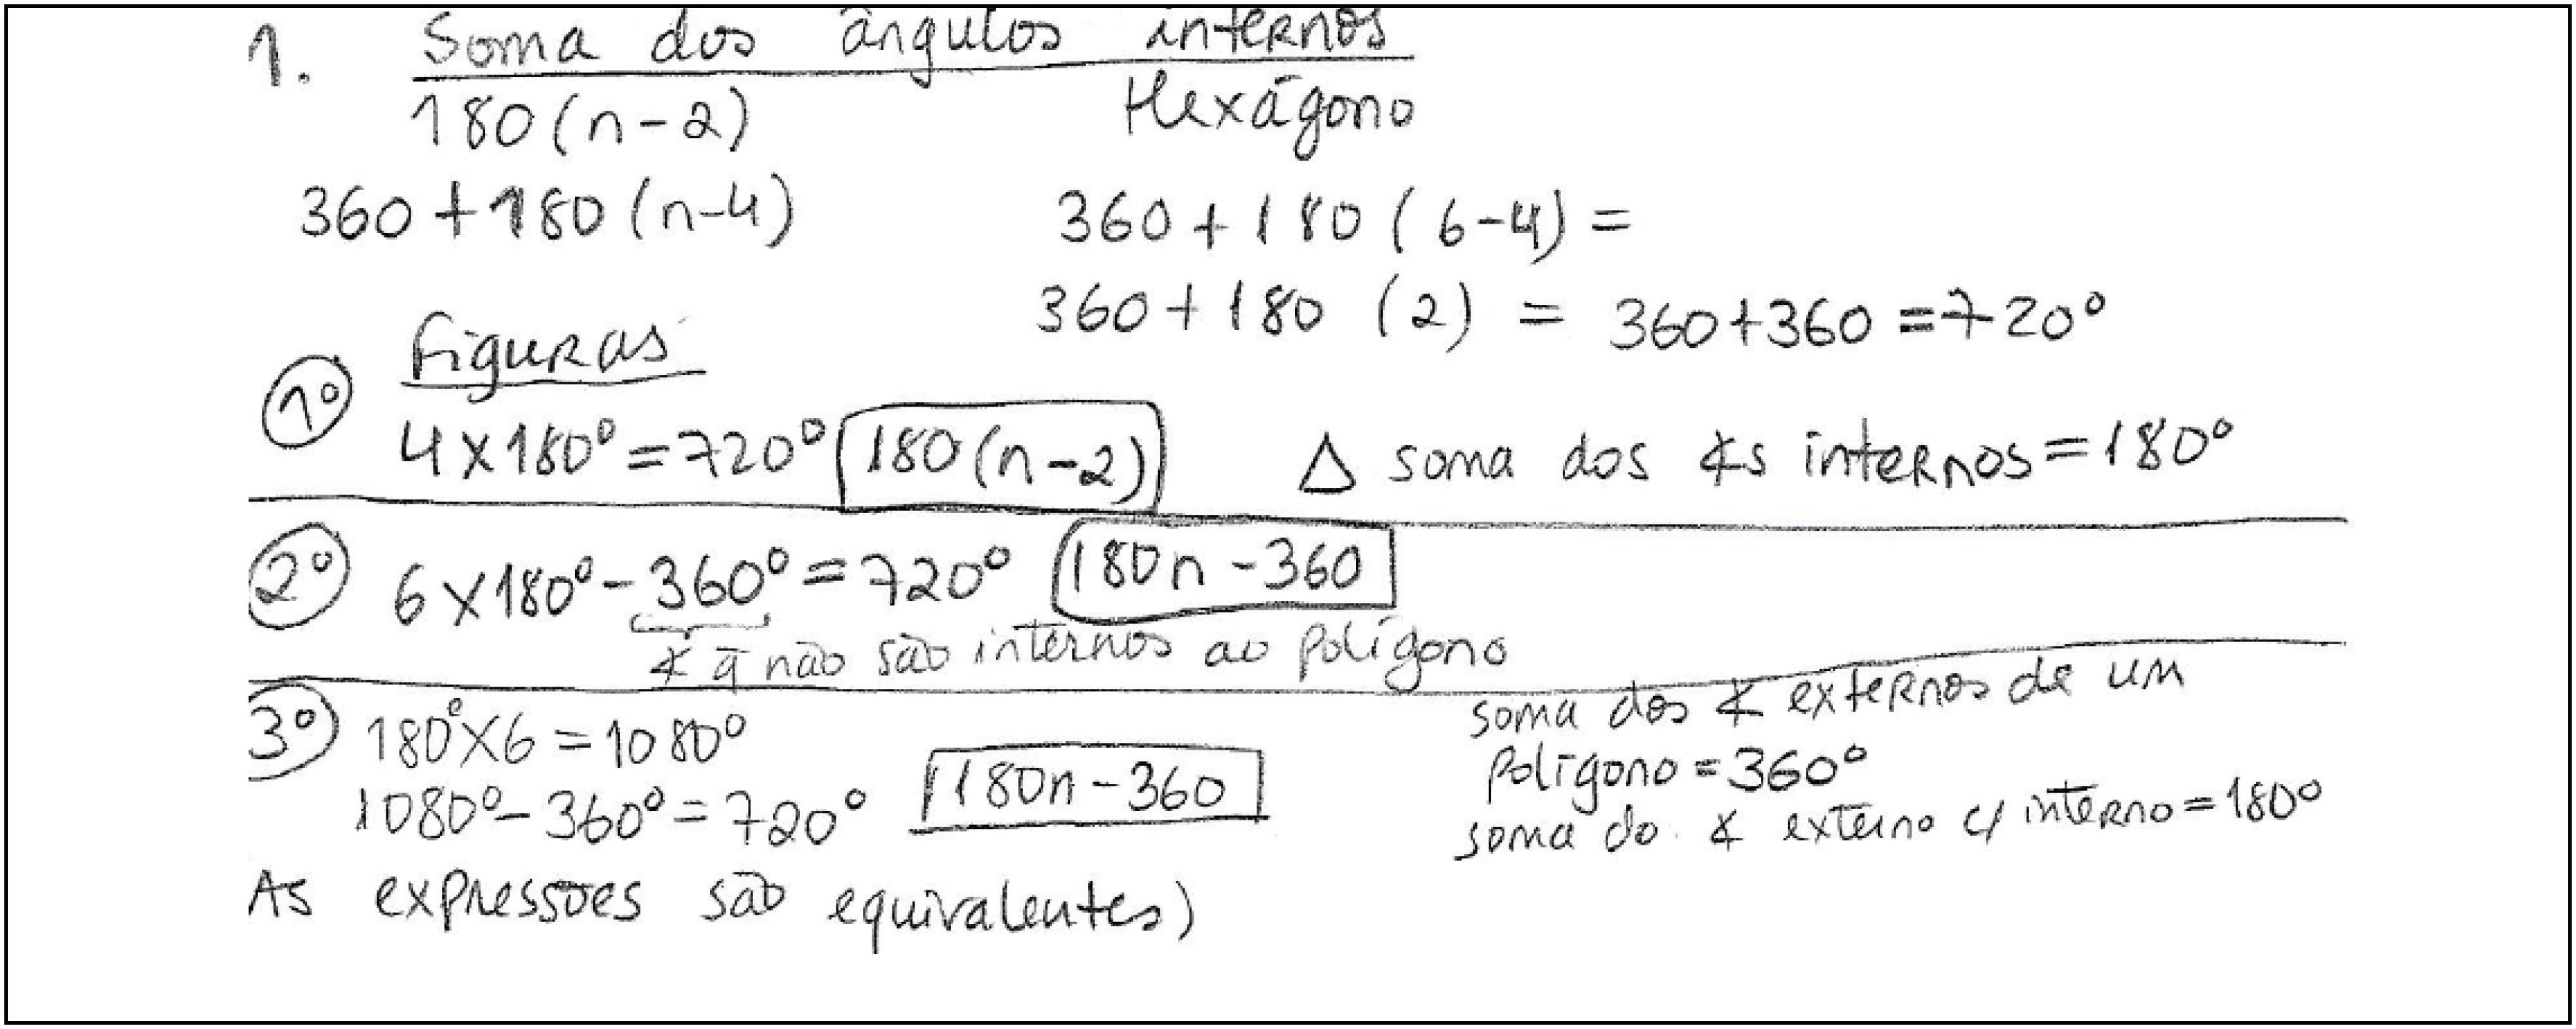 1. Soma dos ângulos internos
180(n-2) Hexágono
360+180(n-4) 360+180(6-4)=
360+180 (2) = 360+360=720°
Figuras
1º 4x180º=720º 180(n-2) △ soma dos ∡s internos=180º
2º 6x180º-360º=720º 180n-360
∡ q̄ não são internos ao polígono
3º 180°x6=1080º
1080º-360º=720º 180n-360
soma dos ∡ externos de um
polígono=360º
soma do ∡ externo c/ interno=180º
As expressões são equivalentes)